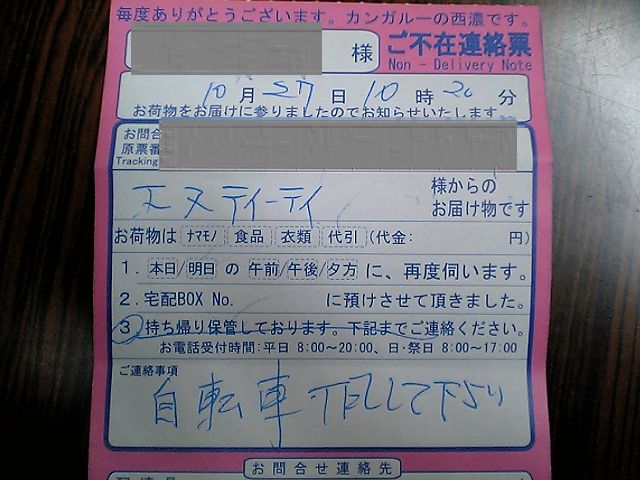 毎度ありがとうございます。カンガルーの西濃です。
様
ご不在連絡票
Non - Delivery Note
10月27日10時20分
お荷物をお届けに参りましたのでお知らせいたします
お問合
原票番
Tracking
エヌティーティ
様からの
お届け物です
お荷物は ナマモノ 食品 衣類 代引 (代金: 円)
1. 本日/明日 の 午前/午後/夕方 に、再度伺います。
2. 宅配BOX No. に預けさせて頂きました。
3. 持ち帰り保管しております。下記までご連絡ください。
お電話受付時間:平日 8:00〜20:00、日・祭日 8:00〜17:00
ご連絡事項
自転車 して下さい
お問合せ連絡先